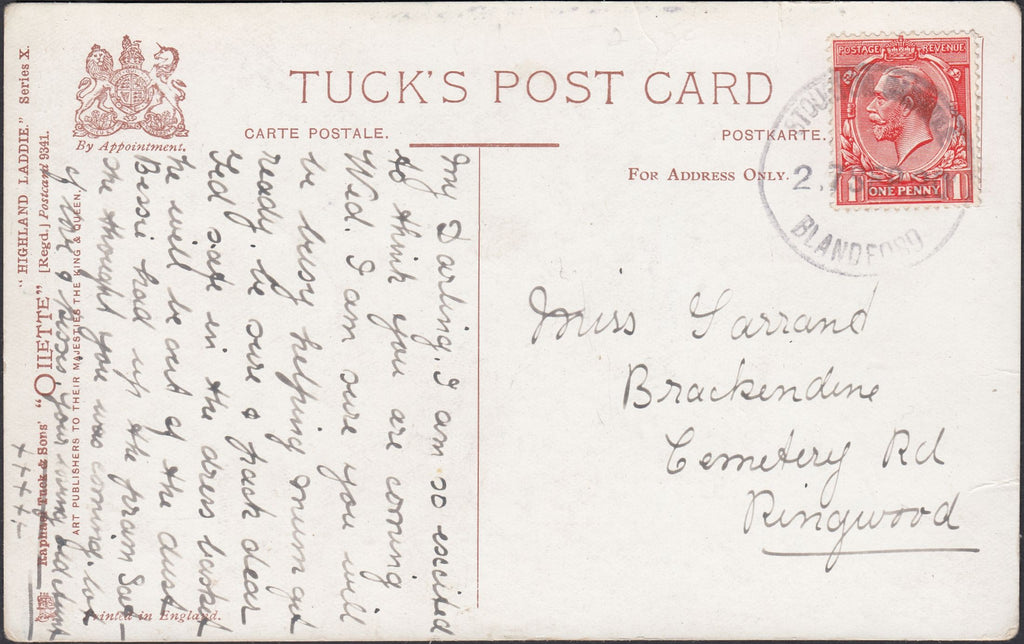 TUCK'S POST CARD
CARTE POSTALE.
POSTKARTE.
FOR ADDRESS ONLY.
By Appointment.
"HIGHLAND LADDIE." Series X.
Raphael Tuck & Sons' "OILETTE" [Regd.] Postcard 9341.
ART PUBLISHERS TO THEIR MAJESTIES THE KING & QUEEN.
Printed in England.
POSTAGE REVENUE
1 ONE PENNY 1
BLANDFORD
My Darling. I am so excited
to think you are coming
Wed. I am sure you will
be busy helping mum get
ready. be sure & pack dear
Ted safe in the dress basket
he will be out of the dust
Bessie had up the pram Sat-
she thought you was coming. lots
of love & kisses your loving
++++
Miss Garrand
Brackendene
Cemetery Rd
Ringwood